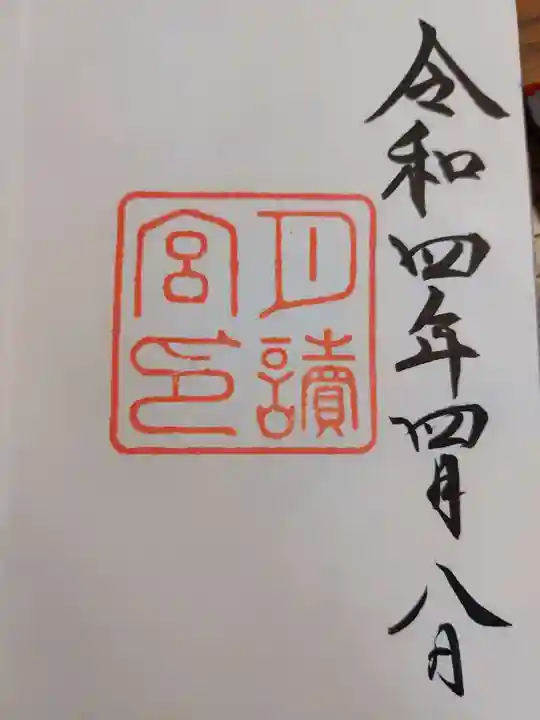 令和四年四月八日
月讀
宮印